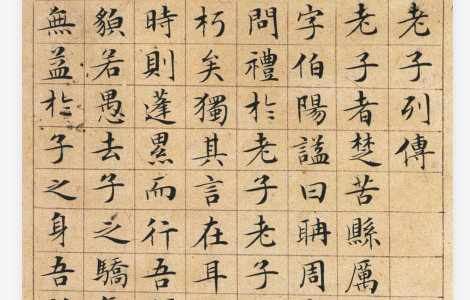 老子列傳
老子者楚苦縣厲
字伯陽謚曰聃周
問禮於老子老子
朽矣獨其言在耳
時則蓬累而行吾
䫉若愚去子之驕
無益於子之身吾